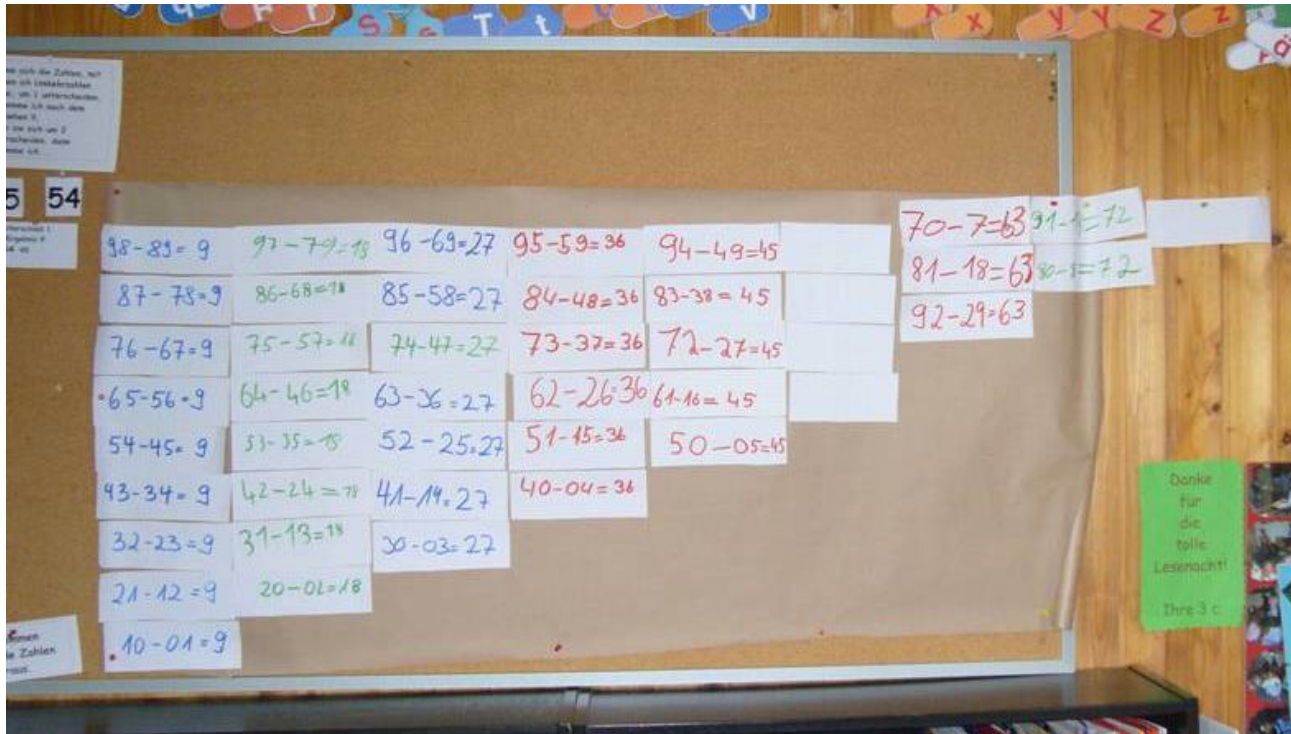 S s T t v X x Y y Z z
5 54
98-89= 9
87-78=9
76-67=9
65-56=9
54-45= 9
43-34= 9
32-23=9
21-12=9
10-01=9
97-79=18
86-68=18
75-57=18
64-46=18
53-35=18
42-24=18
31-13=18
20-02=18
96-69=27
85-58=27
74-47=27
63-36=27
52-25=27
41-14=27
30-03=27
95-59=36
84-48=36
73-37=36
62-26=36
51-15=36
40-04=36
94-49=45
83-38= 45
72-27=45
61-16= 45
50-05=45
70-7=63
81-18=63
92-29=63
91-1=72
80-8=72
Danke
für
die
tolle
Lesenacht!
Ihre 3 c